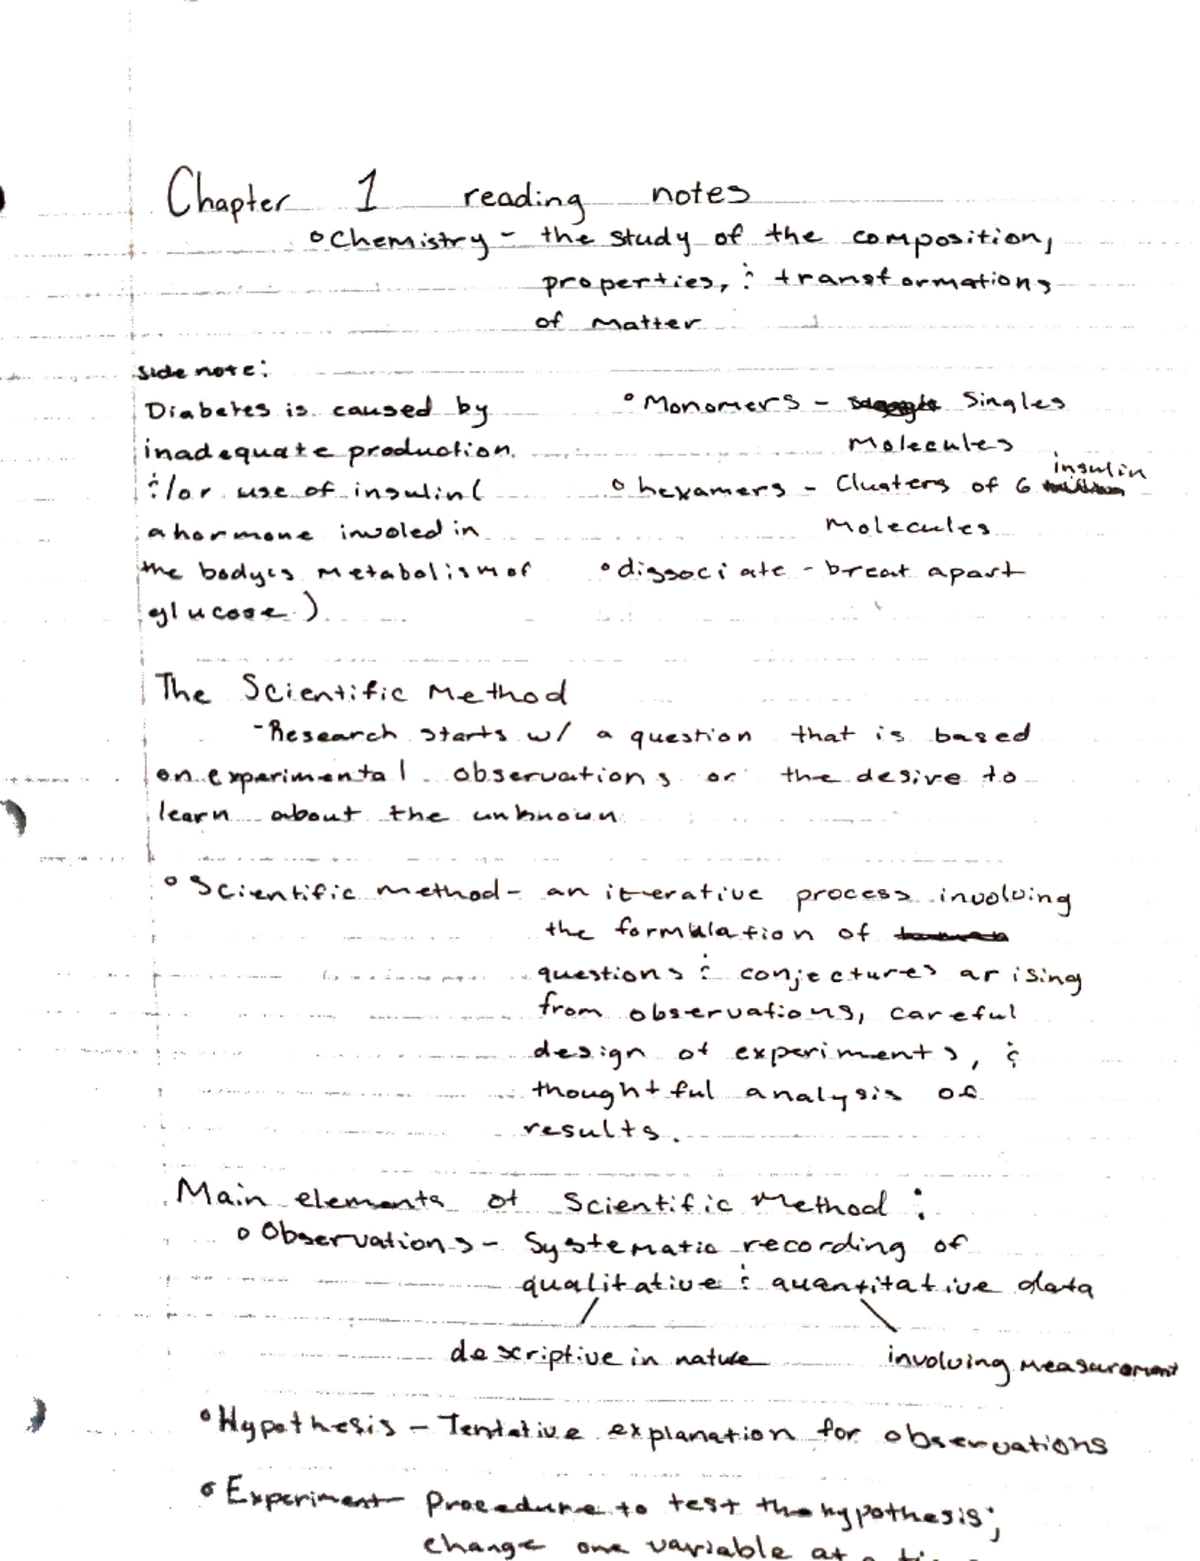 Chapter 1 reading notes
° Chemistry - the study of the composition,
properties, & transformations
of matter
side note:
Diabetes is caused by
inadequate production
&/or use of insulin (
a hormone involed in
the body's metabolism of
glucose.)
° Monomers - Singles
Molecules
° hexamers - Clusters of 6 insulin
Molecules
° dissociate - breat apart
The Scientific Method
- Research starts w/ a question that is based
on experimental observations or the desire to
learn about the unknown
° Scientific method - an iterative process involving
the formulation of
questions & conjectures arising
from observations, careful
design of experiments, &
thoughtful analysis of
results.
Main elements of Scientific Method:
° Observations - Systematic recording of
qualitative & quantitative data
descriptive in nature involving measurement
° Hypothesis - Tentative explanation for observations
° Experiment - Procedure to test the hypothesis;
change one variable at a